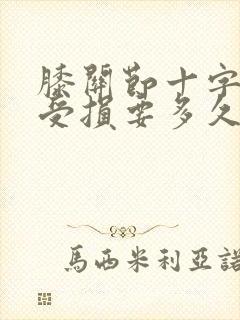 膝關節十字
受損要多久
馬西米利亞諾